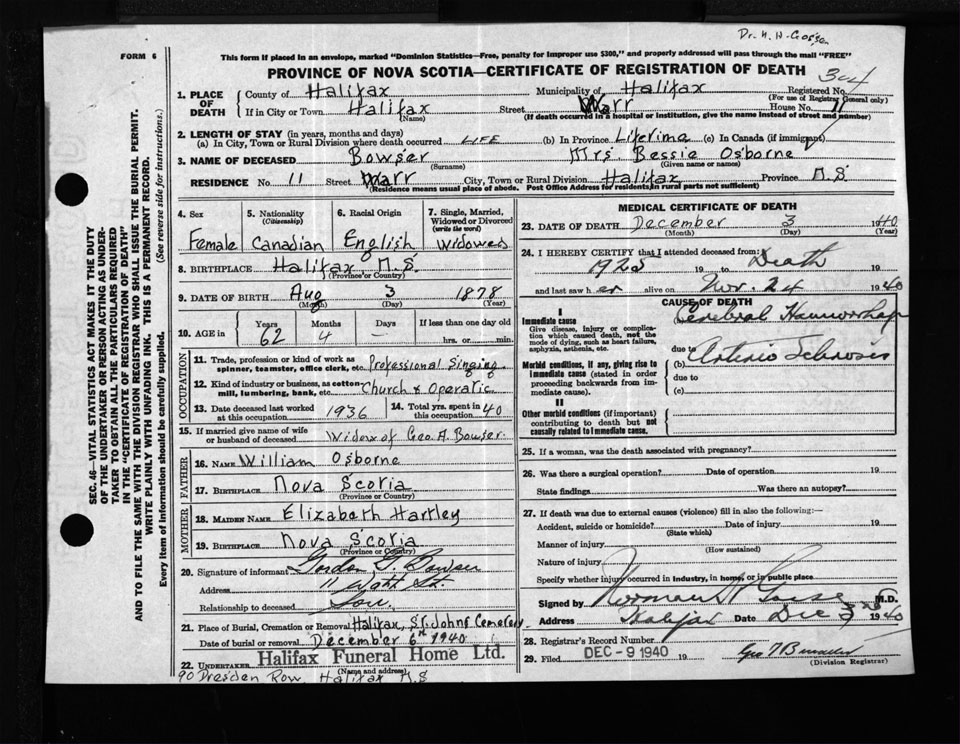 Dr. H. H. Gosse
FORM 6
This form if placed in an envelope, marked "Dominion Statistics—Free, penalty for improper use $300," and properly addressed will pass through the mail "FREE"
PROVINCE OF NOVA SCOTIA—CERTIFICATE OF REGISTRATION OF DEATH
1. PLACE OF DEATH County of Halifax Municipality of Halifax Registered No.
(For use of Registrar General only)
If in City or Town Halifax Street Warr House No. 11
(Name) (If death occurred in a hospital or institution, give the name instead of street and number)
2. LENGTH OF STAY (in years, months and days)
(a) In City, Town or Rural Division where death occurred LIFE (b) In Province Lifetime (c) In Canada (if immigrant)
3. NAME OF DECEASED Bowser Mrs. Bessie Osborne
(Surname) (Given name or names)
RESIDENCE No. 11 Street Warr City, Town or Rural Division Halifax Province N.S
(Residence means usual place of abode. Post Office Address for residents in rural parts not sufficient)
4. Sex Female
5. Nationality (Citizenship) Canadian
6. Racial Origin English
7. Single, Married, Widowed or Divorced (write the word) Widowed
8. BIRTHPLACE Halifax, N.S.
(Province or Country)
9. DATE OF BIRTH Aug 3 1878
(Month) (Day) (Year)
10. AGE in Years 62 Months 4 Days If less than one day old hrs. or min.
OCCUPATION
11. Trade, profession or kind of work as spinner, teamster, office clerk, etc. Professional Singing
12. Kind of industry or business, as cotton mill, lumbering, bank, etc. Church & Operatic
13. Date deceased last worked at this occupation 1936
14. Total yrs. spent in this occupation 40
15. If married give name of wife or husband of deceased Widow of Geo. A. Bowser
FATHER
16. NAME William Osborne
17. BIRTHPLACE Nova Scotia
(Province or Country)
MOTHER
18. MAIDEN NAME Elizabeth Hartley
19. BIRTHPLACE Nova Scotia
(Province or Country)
20. Signature of informant Gordon G. Bowser
Address 11 St.
Relationship to deceased Son.
21. Place of Burial, Cremation or Removal Halifax, St. Johns Cemetery
Date of burial or removal December 6th 1940
22. UNDERTAKER Halifax Funeral Home Ltd.
(Name and address)
90 Dresden Row Halifax N.S
MEDICAL CERTIFICATE OF DEATH
23. DATE OF DEATH December 3 1940
(Month) (Day) (Year)
24. I HEREBY CERTIFY that I attended deceased from:
1925 19 to Death 19
and last saw her alive on Nov. 24 1940
CAUSE OF DEATH
I
Immediate cause
Give disease, injury or complication which caused death, not the mode of dying, such as heart failure, asphyxia, asthenia, etc.
(a) Cerebral Haemorrhage
due to
Morbid conditions, if any, giving rise to immediate cause (stated in order proceeding backwards from immediate cause).
(b) Arterio Sclerosis
due to
(c)
II
Other morbid conditions (if important) contributing to death but not causally related to immediate cause.
25. If a woman, was the death associated with pregnancy?
26. Was there a surgical operation? Date of operation 19
State findings Was there an autopsy?
27. If death was due to external causes (violence) fill in also the following:—
Accident, suicide or homicide? Date of injury 19
(State which)
Manner of injury
(How sustained)
Nature of injury
Specify whether injury occurred in industry, in home, or in public place
Signed by Norman H. Gosse M.D.
Address Halifax Date Dec 3rd 1940
28. Registrar's Record Number
29. Filed DEC - 9 1940 19
(Division Registrar)
SEC. 46—VITAL STATISTICS ACT MAKES IT THE DUTY
OF THE UNDERTAKER OR PERSON ACTING AS UNDER-
TAKER TO OBTAIN ALL THE PARTICULARS REQUIRED
IN THE "CERTIFICATE OF REGISTRATION OF DEATH"
AND TO FILE THE SAME WITH THE DIVISION REGISTRAR WHO SHALL ISSUE THE BURIAL PERMIT.
WRITE PLAINLY WITH UNFADING INK. THIS IS A PERMANENT RECORD.
Every item of information should be carefully supplied. (See reverse side for instructions.)